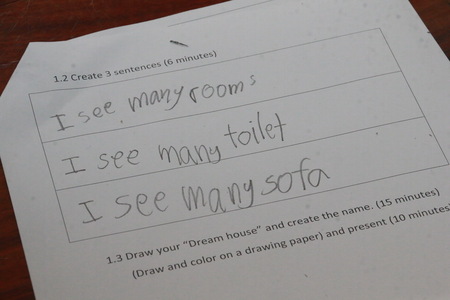 1.2 Create 3 sentences (6 minutes)
I see many rooms
I see many toilet
I see many sofa
1.3 Draw your "Dream house" and create the name. (15 minutes)
(Draw and color on a drawing paper) and present (10 minutes